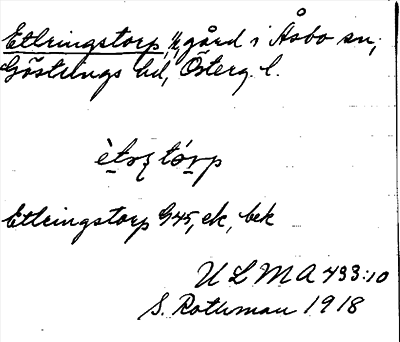 Etlringstorp, 1/2 gård i Åsbo sn,
Göstrings hd, Österg. l.
ètrʒ tórp
Etlringstorp G45, ek, bek
ULMA 433:10
S. Rothman 1918